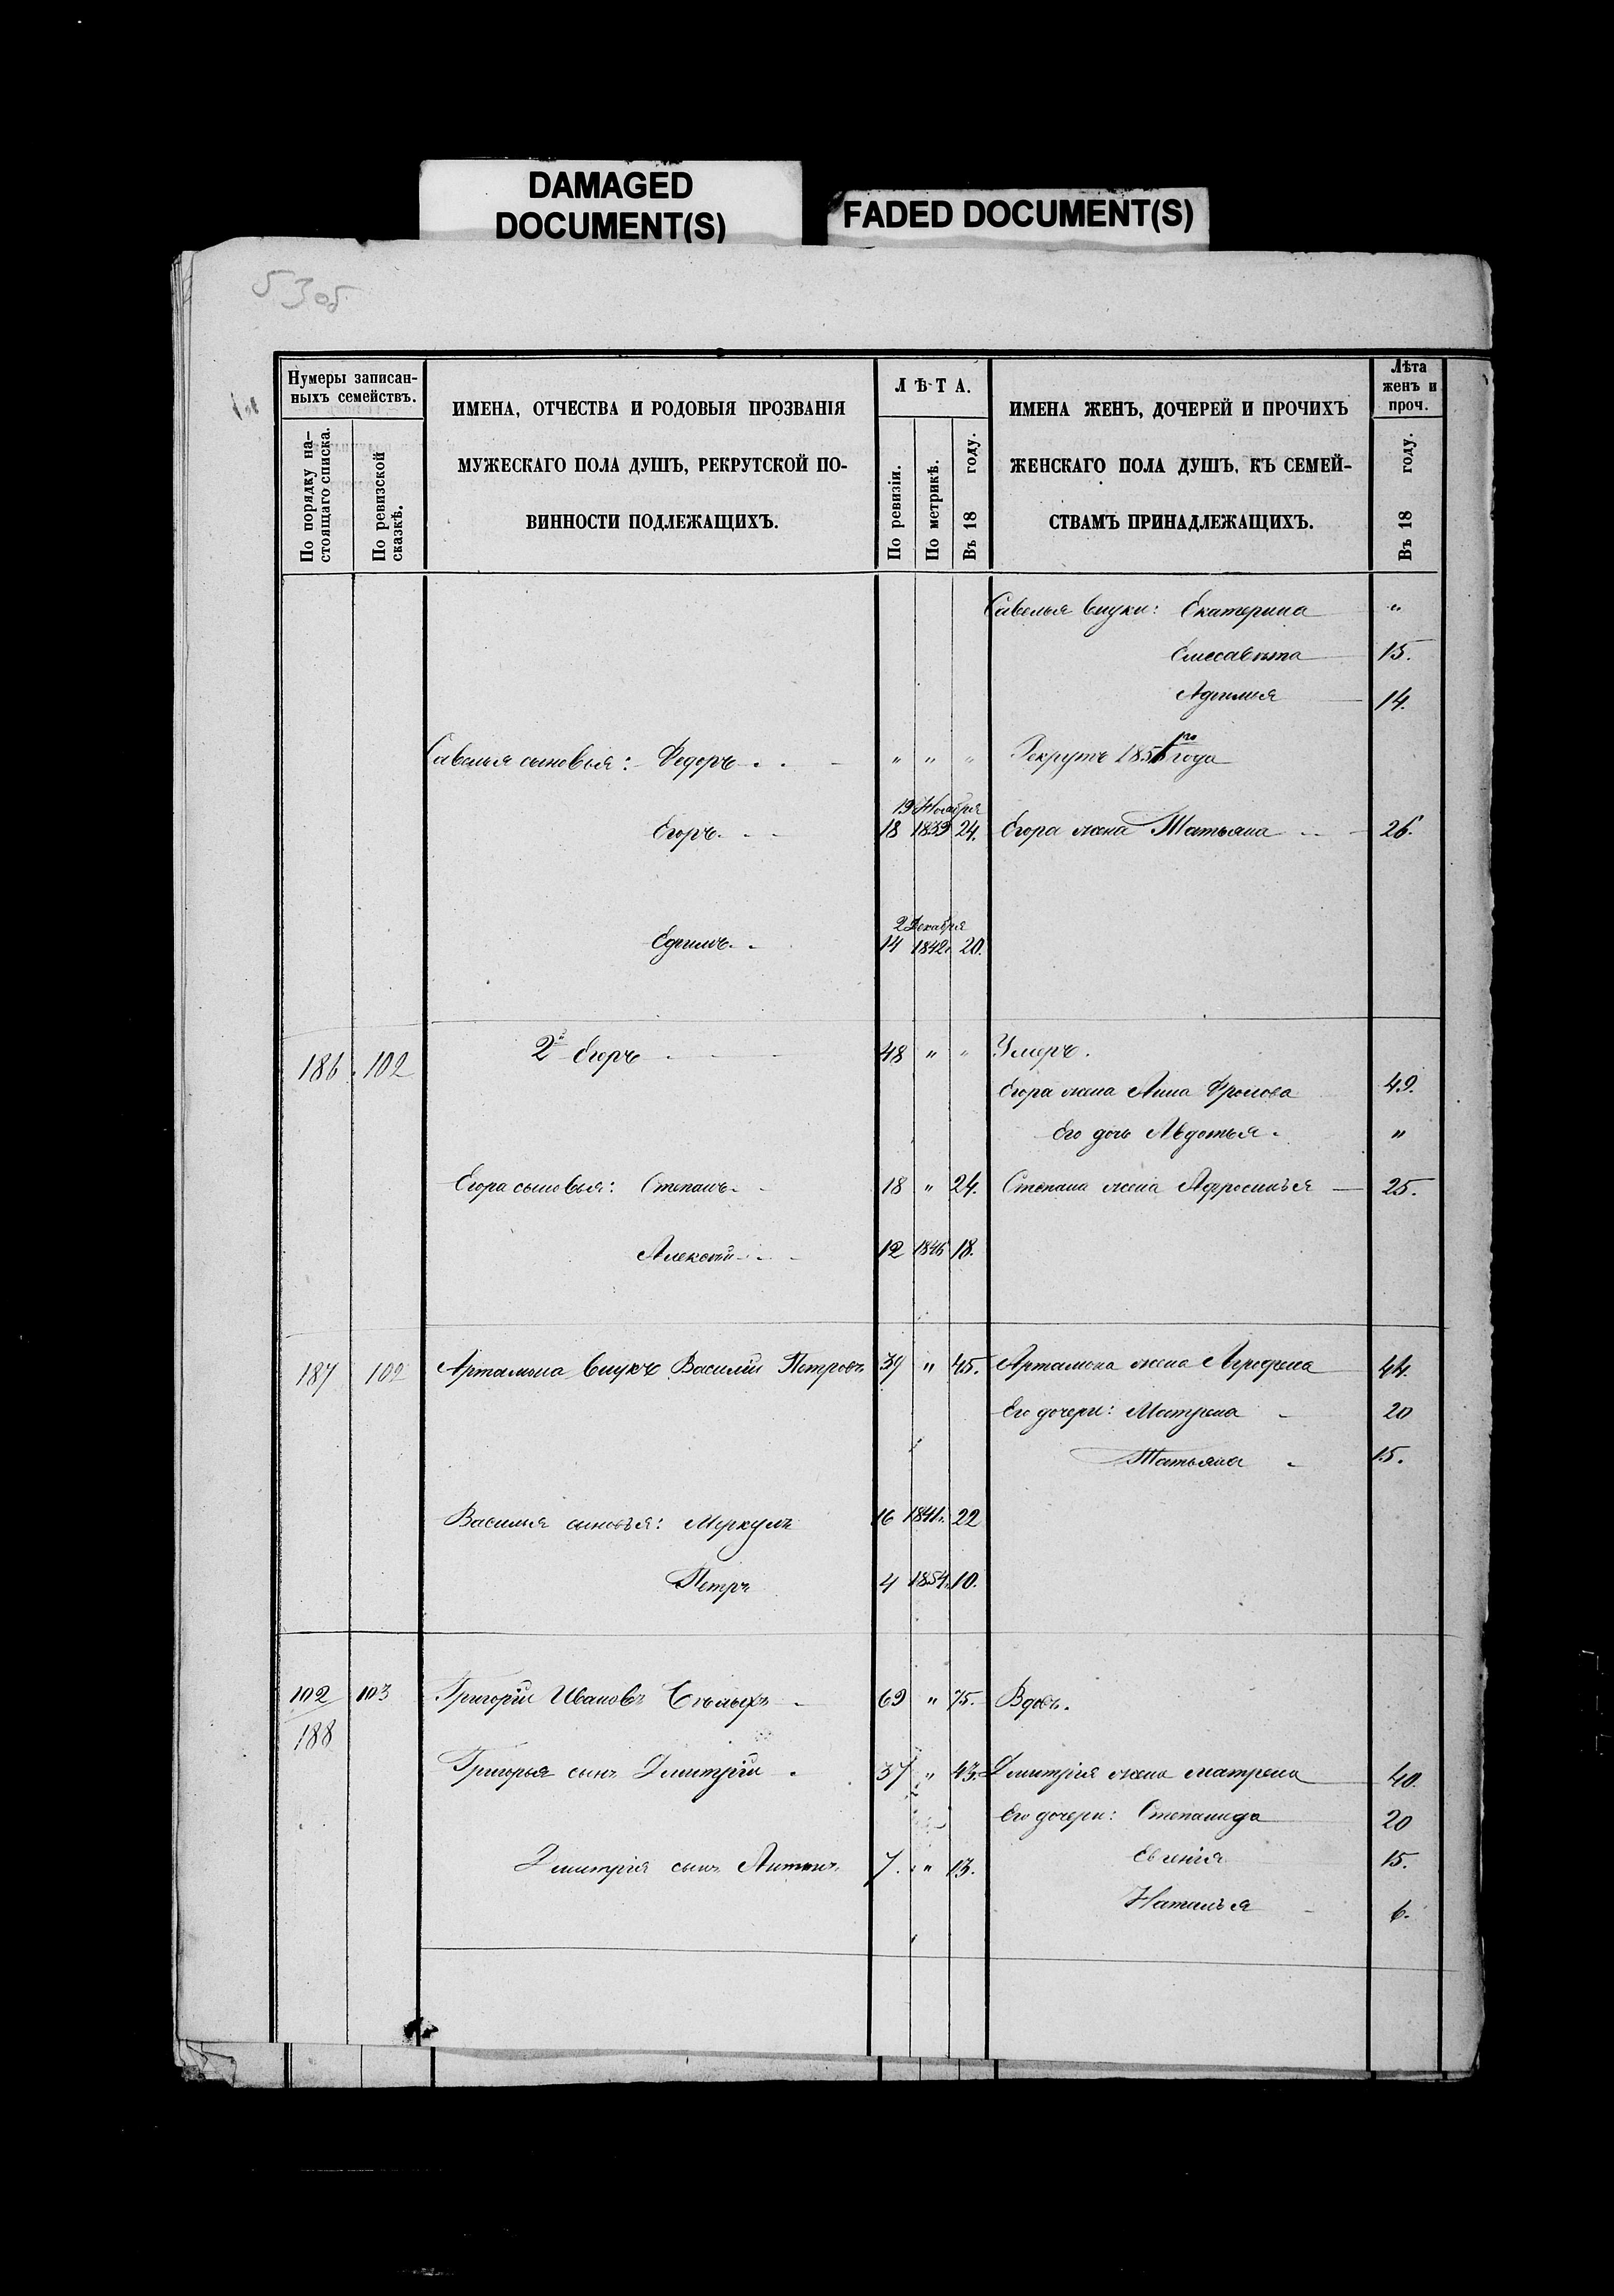 DAMAGED
DOCUMENT(S)
FADED DOCUMENT(S)
53об
Нумеры записан-
ныхъ семействъ.
По порядку на-
стоящаго списка.
По ревизской
сказкѣ.
ИМЕНА, ОТЧЕСТВА И РОДОВЫЯ ПРОЗВАНІЯ
МУЖЕСКАГО ПОЛА ДУШЪ, РЕКРУТСКОЙ ПО-
ВИННОСТИ ПОДЛЕЖАЩИХЪ.
ЛѢТА.
По ревизіи.
По метрикѣ.
Въ 18 году.
ИМЕНА ЖЕНЪ, ДОЧЕРЕЙ И ПРОЧИХЪ
ЖЕНСКАГО ПОЛА ДУШЪ, КЪ СЕМЕЙ-
СТВАМЪ ПРИНАДЛЕЖАЩИХЪ.
Лѣта
женъ и
проч.
Въ 18 году.
Савелья внуки: Екатерина "
Елисавета 15.
Афимья 14.
Савелья сыновья: Федоръ " " " Рекрутъ года
19 Ноября
Егоръ 18 1839 24. Егора жена Татьяна 26.
2 Декабря
Ефимъ 14 1842 20.
186 102 2й Егоръ 48 " " Умеръ.
Егора жена Анна Фролова 49.
Его дочь Авдотья "
Егора сыновья: Степанъ 18 " 24. Степана жена Афросинья 25.
Алексѣй 12 1846 18.
187 102 Артамона внукъ Василій Петровъ 39 " 45. Артамона жена Аграфена 44.
Его дочери: Матрена 20
Татьяна 15.
Василья сыновья: Меркулъ 16 1841. 22
Петръ 4 1854. 10.
102 103 Григорій Ивановъ 69 " 75. Вдовъ.
188
Григорья сынъ Дмитрій 37 " 43. Дмитрія жена Матрена 40.
Его дочери: Степанида 20
Дмитрія сынъ Антонъ 7. " 13. Евгенія 15.
Наталья 6.